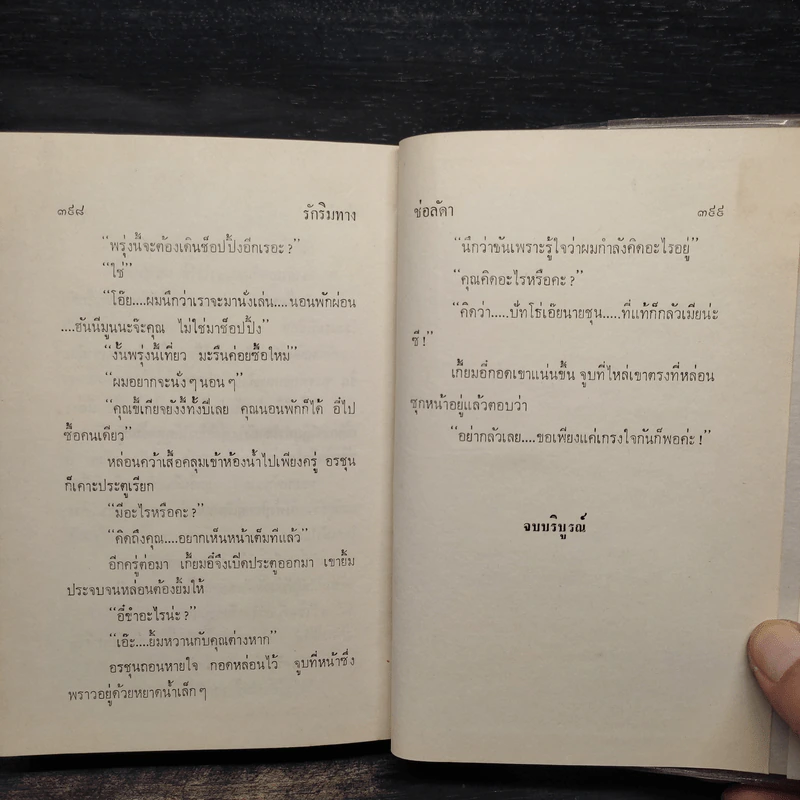 ๓๙๘ รักริมทาง
“พรุ่งนี้จะต้องเดินช็อปปิ้งอีกเรอะ ?”
“ใช่”
“โอ๊ย....ผมนึกว่าเราจะมานั่งเล่น....นอนพักผ่อน
....ฮันนีมูนนะจ๊ะคุณ ไม่ใช่มาช็อปปิ้ง”
“งั้นพรุ่งนี้เที่ยว มะรืนค่อยซื้อใหม่”
“ผมอยากจะนั่ง ๆ นอน ๆ”
“คุณขี้เกียจยังงี้ทั้งปีเลย คุณนอนพักก็ได้ อี๋ไป
ซื้อคนเดียว”
หล่อนคว้าเสื้อคลุมเข้าห้องน้ำไปเพียงครู่ อรชุน
ก็เคาะประตูเรียก
“มีอะไรหรือคะ ?”
“คิดถึงคุณ....อยากเห็นหน้าเต็มทีแล้ว”
อีกครู่ต่อมา เกี้ยมอี๋จึงเปิดประตูออกมา เขายิ้ม
ประจบจนหล่อนต้องยิ้มให้
“อี๋ขำอะไรน่ะ ?”
“เอ๊ะ....ยิ้มหวานกับคุณต่างหาก”
อรชุนถอนหายใจ กอดหล่อนไว้ จูบที่หน้าซึ่ง
พราวอยู่ด้วยหยาดน้ำเล็ก ๆ
ช่อลัดา ๓๙๙
“นึกว่าขันเพราะรู้ใจว่าผมกำลังคิดอะไรอยู่”
“คุณคิดอะไรหรือคะ ?”
“คิดว่า.....ปัทโธ่เอ๊ยนายชุน.....ที่แท้ก็กลัวเมียน่ะ
ซี !”
เกี้ยมอี๋กอดเขาแน่นขึ้น จูบที่ไหล่เขาตรงที่หล่อน
ซุกหน้าอยู่แล้วตอบว่า
“อย่ากลัวเลย....ขอเพียงแค่เกรงใจกันก็พอค่ะ !”
จบบริบูรณ์